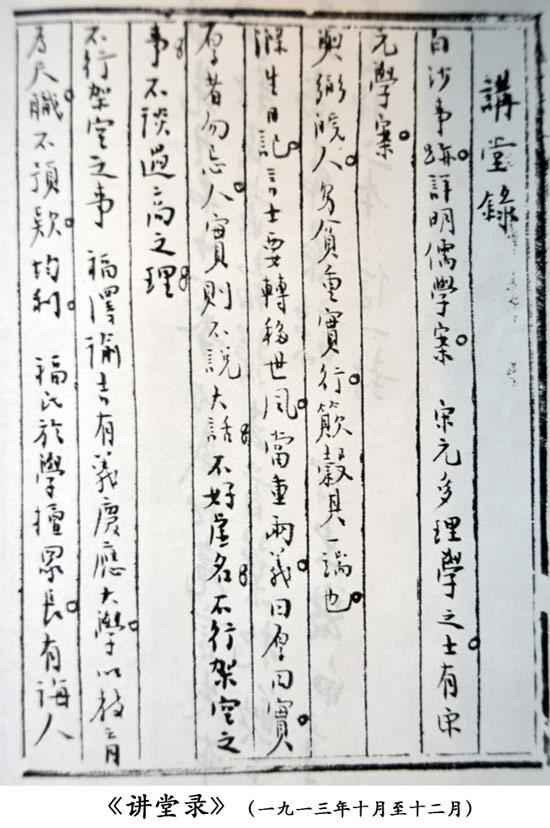 講堂錄
白沙事跡詳明儒學案。宋元多理學之士有宋
元學案。
與弼曉人多貧重實行簸穀其一端也。
滌生日記。言士要轉移世風。當重兩義曰厚曰實。
厚者勿忌人實則不說大話。不好虛名。不行架空之
事。不談過高之理。
不行架空之事 福澤諭吉有義慶應大學。以教育
為天職不預款均利。 福氏於學擅眾長。有誨人
《讲堂录》（一九一三年十月至十二月）